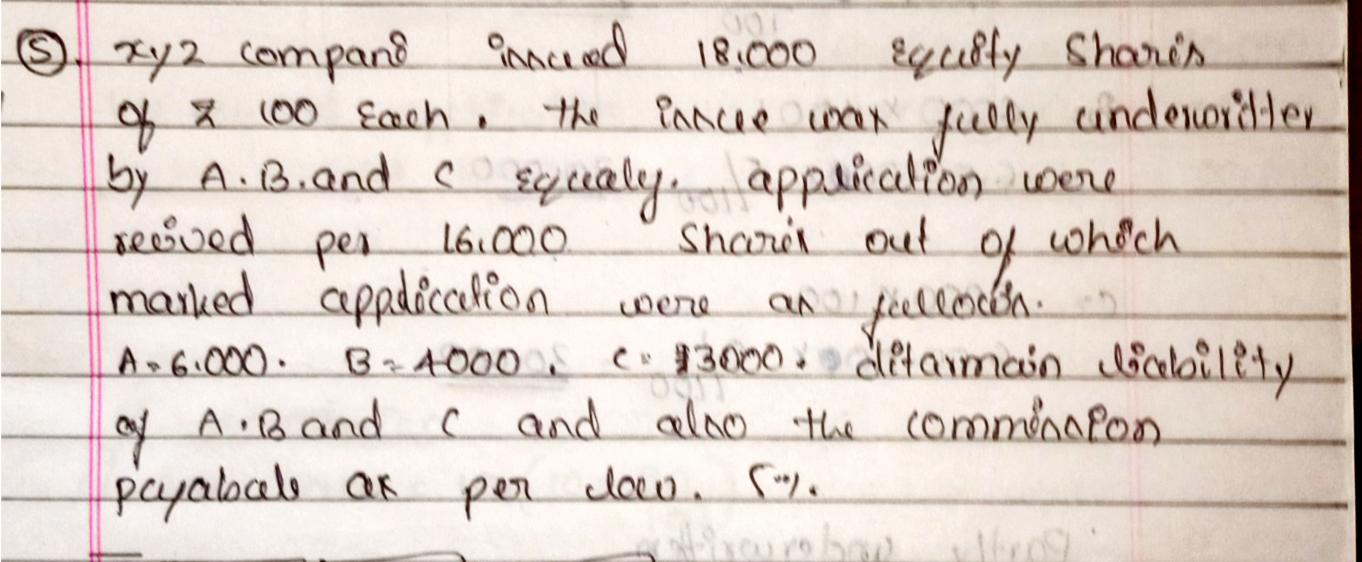 ⑤. xyz company issued 18.000 Equity Shares
of ₹ 100 Each. the issue was fully underwritter
by A. B. and C Equaly. application were
received per 16.000 Shares out of which
marked application were as follows.
A = 6.000. B = 4000. C = 3000. ditarmain liability
of A. B and C and also the commission
payabale as per law. 5%.